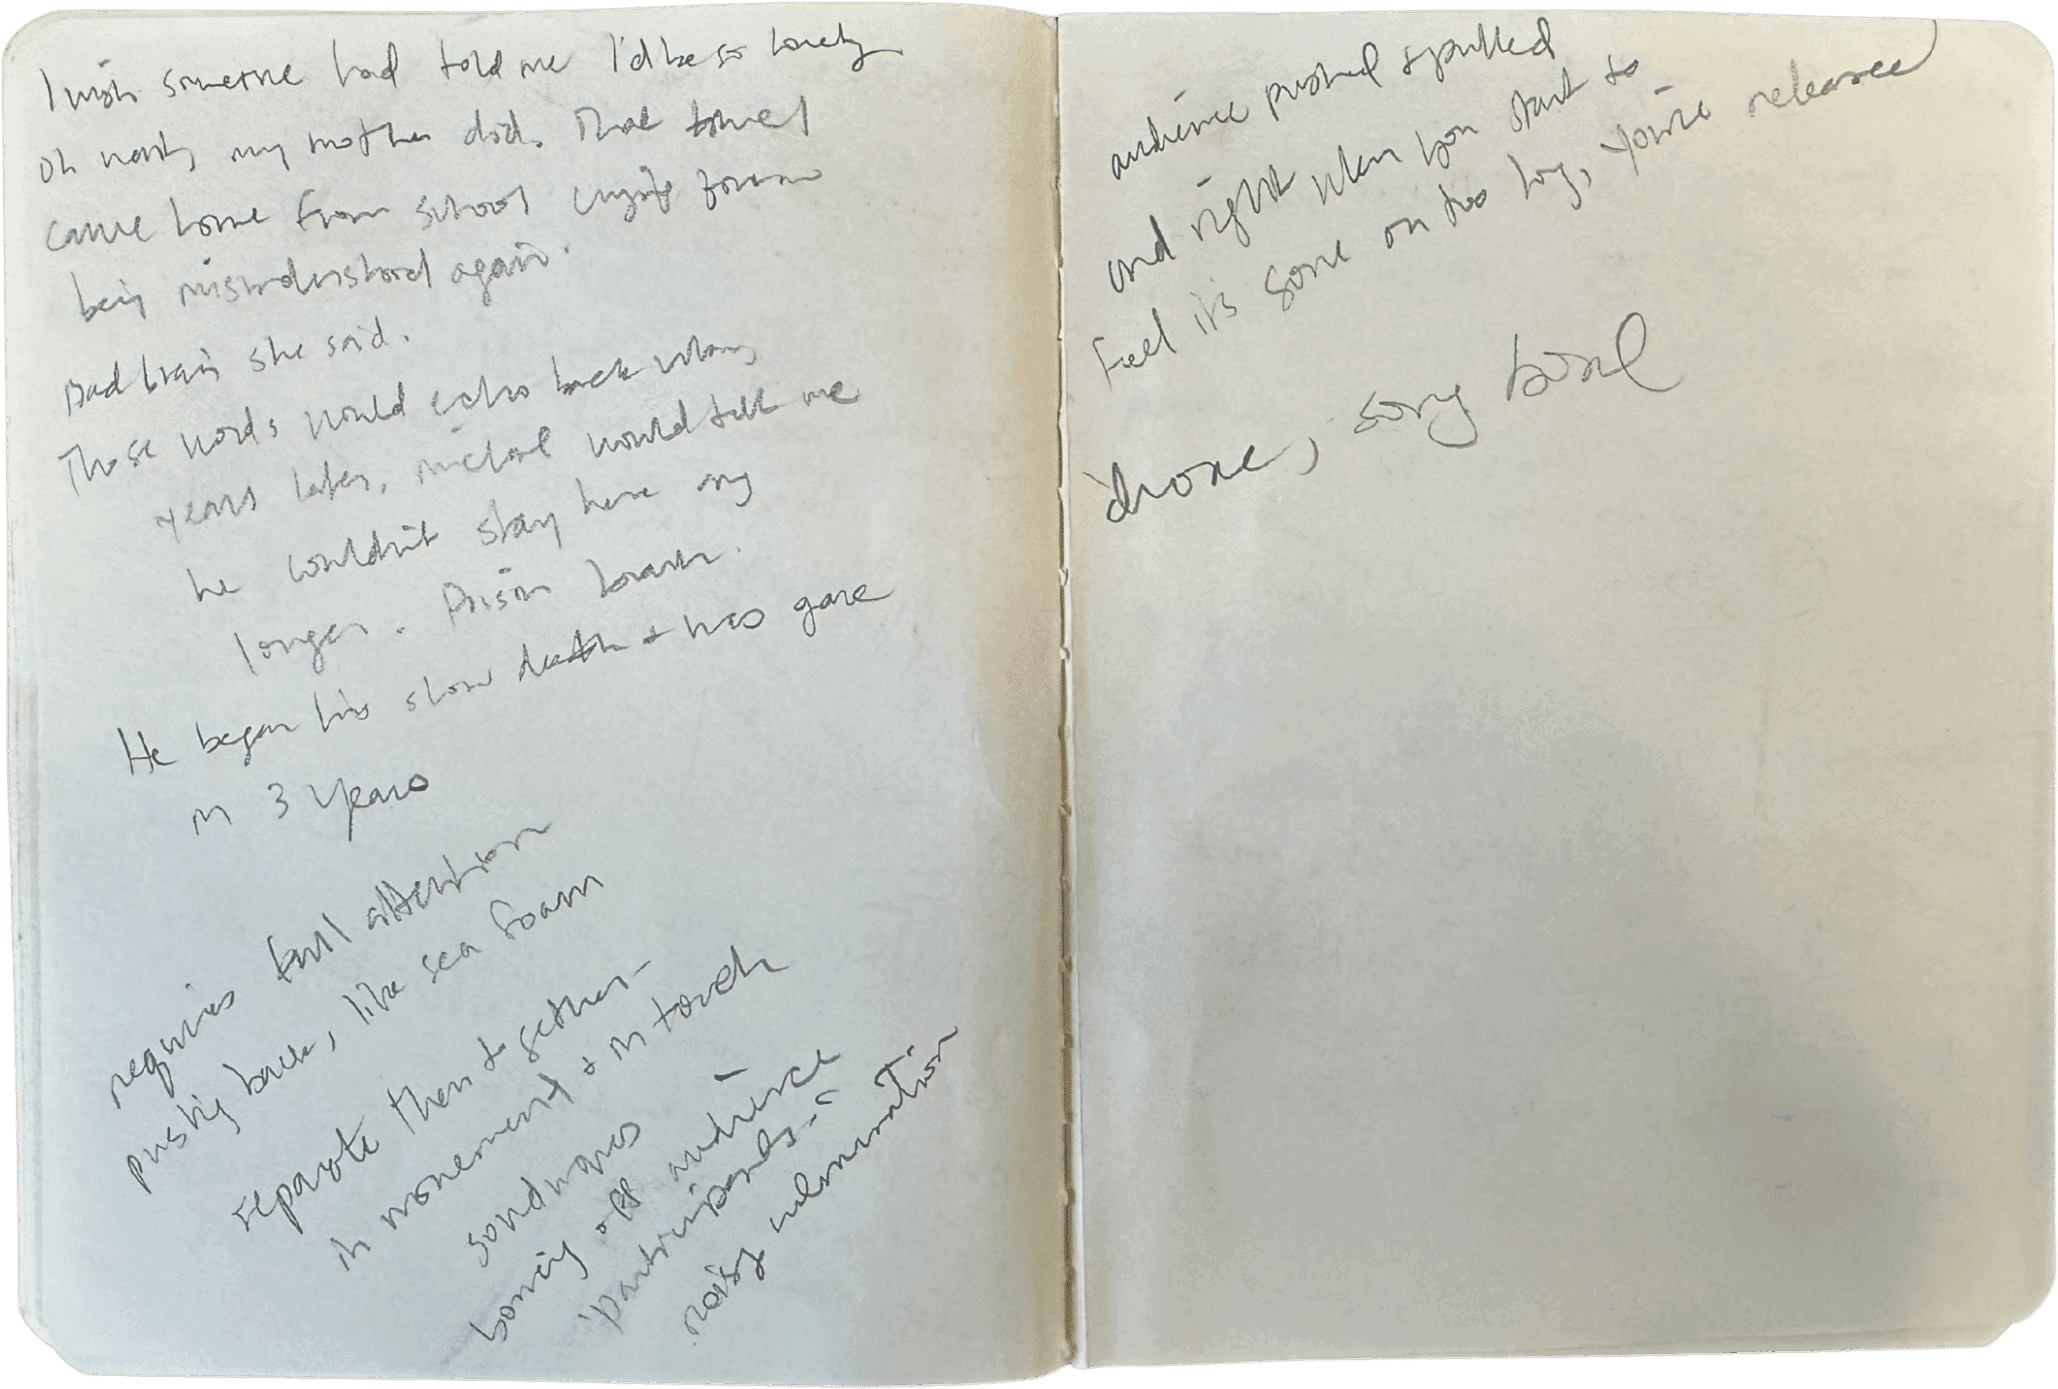 I wish someone had told me I'd be so lonely
oh wait, my mother did. That time I
came home from school crying from
being misunderstood again.
she said.
Those words would echo back many
years later, would tell me
he couldn't stay here any
longer. Prison brain.
He began his slow death + was gone
in 3 years
requires full attention
pushing back, like sea foam
separate then together -
in movement & in touch
soundwaves
boncing off audience
participants -
noisy
audience pushed & pulled
and right when you start to
feel it's gone on too long, you're released
drone, song bowl